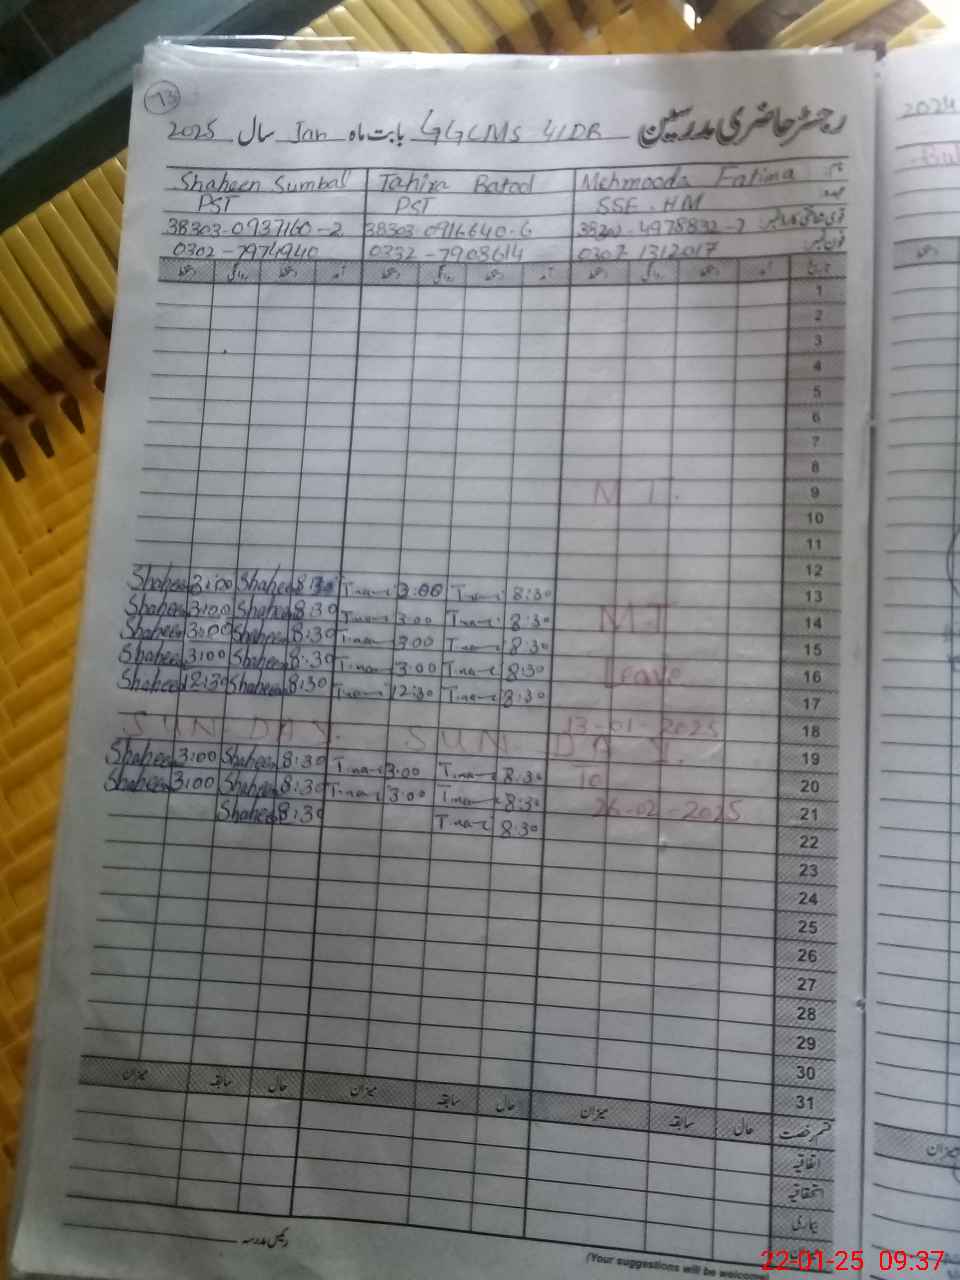 73
رجسٹر حاضری مدرسین GGCMS 41DR بابت ماہ Jan سال 2025
Shaheen Sumball Tahira Batool Mehmooda Fatima نام
PST PST SSE-HM عہدہ
38303-0937160-2 38303-0916640-6
0302-7974940 0332-7908614 0307-1312017 فون نمبر
دستخط روانگی دستخط آمد دستخط روانگی دستخط آمد دستخط روانگی دستخط آمد تاریخ
1
2
3
4
5
6
7
8
9
10
11
12
Shaheen 3:00 Shaheen 8:30 3:00 8:30 13
Shaheen 3:00 Shaheen 8:30 3:00 8:30 14
Shaheen 3:00 Shaheen 8:30 3:00 8:30 15
Shaheen 3:00 Shaheen 8:30 3:00 8:30 Leave 16
Shaheen 12:30 Shaheen 8:30 12:30 8:30 17
13-01-2025 18
SUNDAY. SUNDAY. 19
Shaheen 3:00 Shaheen 8:30 3:00 8:30 To 20
Shaheen 3:00 Shaheen 8:30 3:00 8:30 26-02-2025 21
Shaheen 8:30 8:30 22
23
24
25
26
27
28
29
30
31
میزان سابقہ حال میزان سابقہ حال میزان سابقہ حال قسم رخصت
اتفاقیہ
استحقاقیہ
بیماری
میزان
رئیس مدرسہ
(Your suggestions will be welcome
2024
میزان
22-01-25 09:37